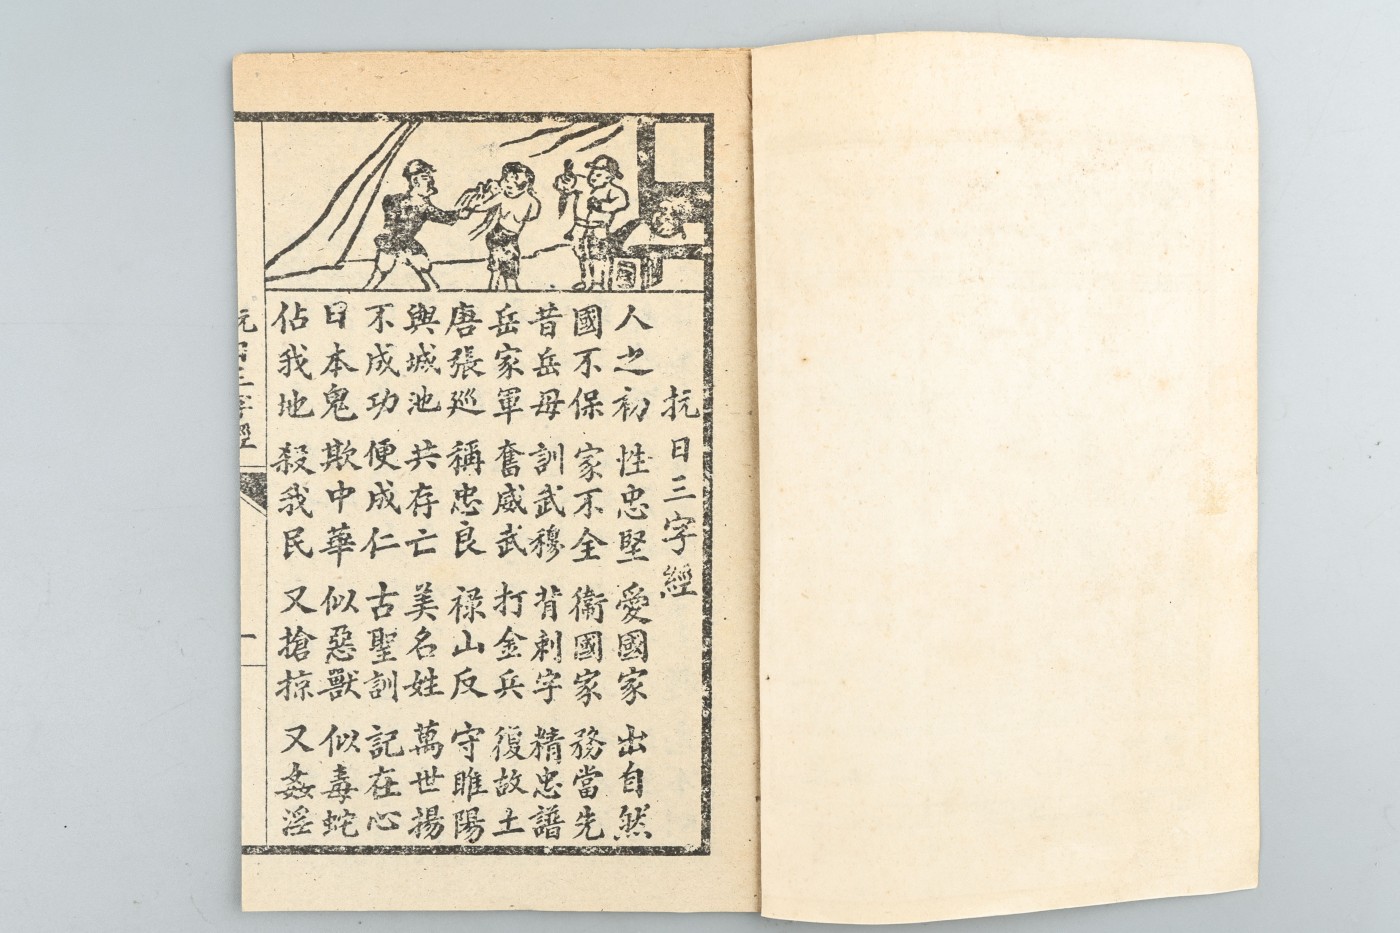 抗日三字經
人之初 性忠堅 愛國家 出自然
國不保 家不全 衞國家 務當先
昔岳母 訓武穆 背刺字 精忠譜
岳家軍 奮威武 打金兵 復故土
唐張巡 稱忠良 禄山反 守睢陽
與城池 共存亡 美名姓 萬世揚
不成功 便成仁 古聖訓 記在心
日本鬼 欺中華 似惡獸 似毒蛇
佔我地 殺我民 又搶掠 又姦淫
三字經
一